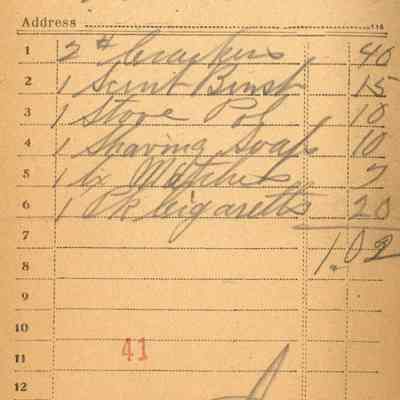 Address
1 2 # Crackers 40
2 1 Scrub Brush 15
3 1 Stove Pol 10
4 1 Shaving Soap 10
5 1 bx Matches 7
6 1 Pk Cigaretts 20
7 1.02
8
9
10
11 41
12